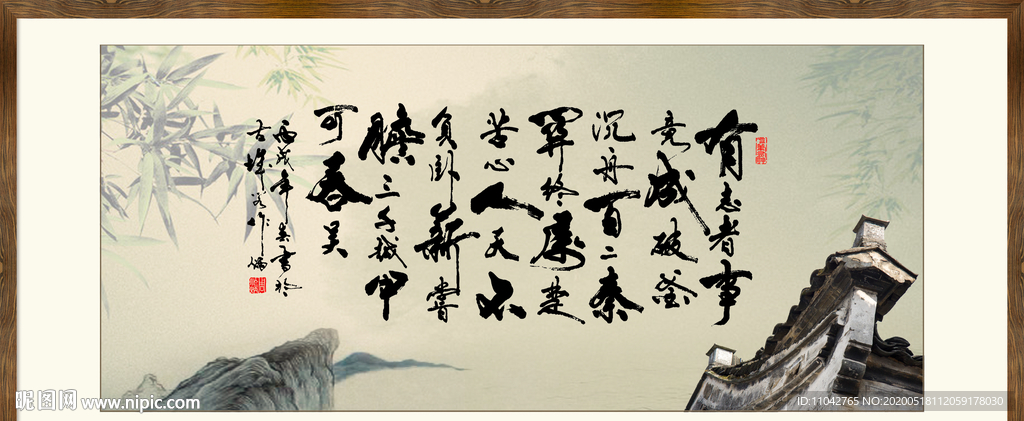 有志者事
竟成破釜
沉舟百二秦
關终属楚
苦心人天不
負卧薪嘗
膽三千越甲
可吞吴
丙戌年書於
古城
昵图网 www.nipic.com
ID:11042765 NO:20200518112059178030